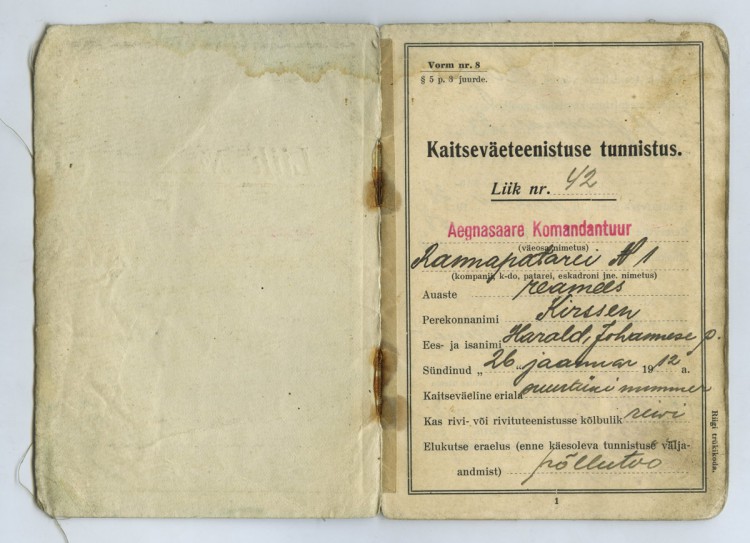 Vorm nr. 8
§ 5 p. 3 juurde.
Kaitseväeteenistuse tunnistus.
Liik nr. 42
Aegnasaare Komandantuur
(väeosa nimetus)
Rannapatarei № 1
(kompanii, k-do, patarei, eskadroni jne. nimetus)
Auaste reamees
Perekonnanimi Kirssen
Ees- ja isanimi Harald, Johannese p.
Sündinud „26„ jaanuar 1912 a.
Kaitseväeline eriala nummer
Kas rivi- või rivituteenistusse kõlbulik riwi
Elukutse eraelus (enne käesoleva tunnistuse välja-
andmist) põllutöö
Riigi trükikoda.
1